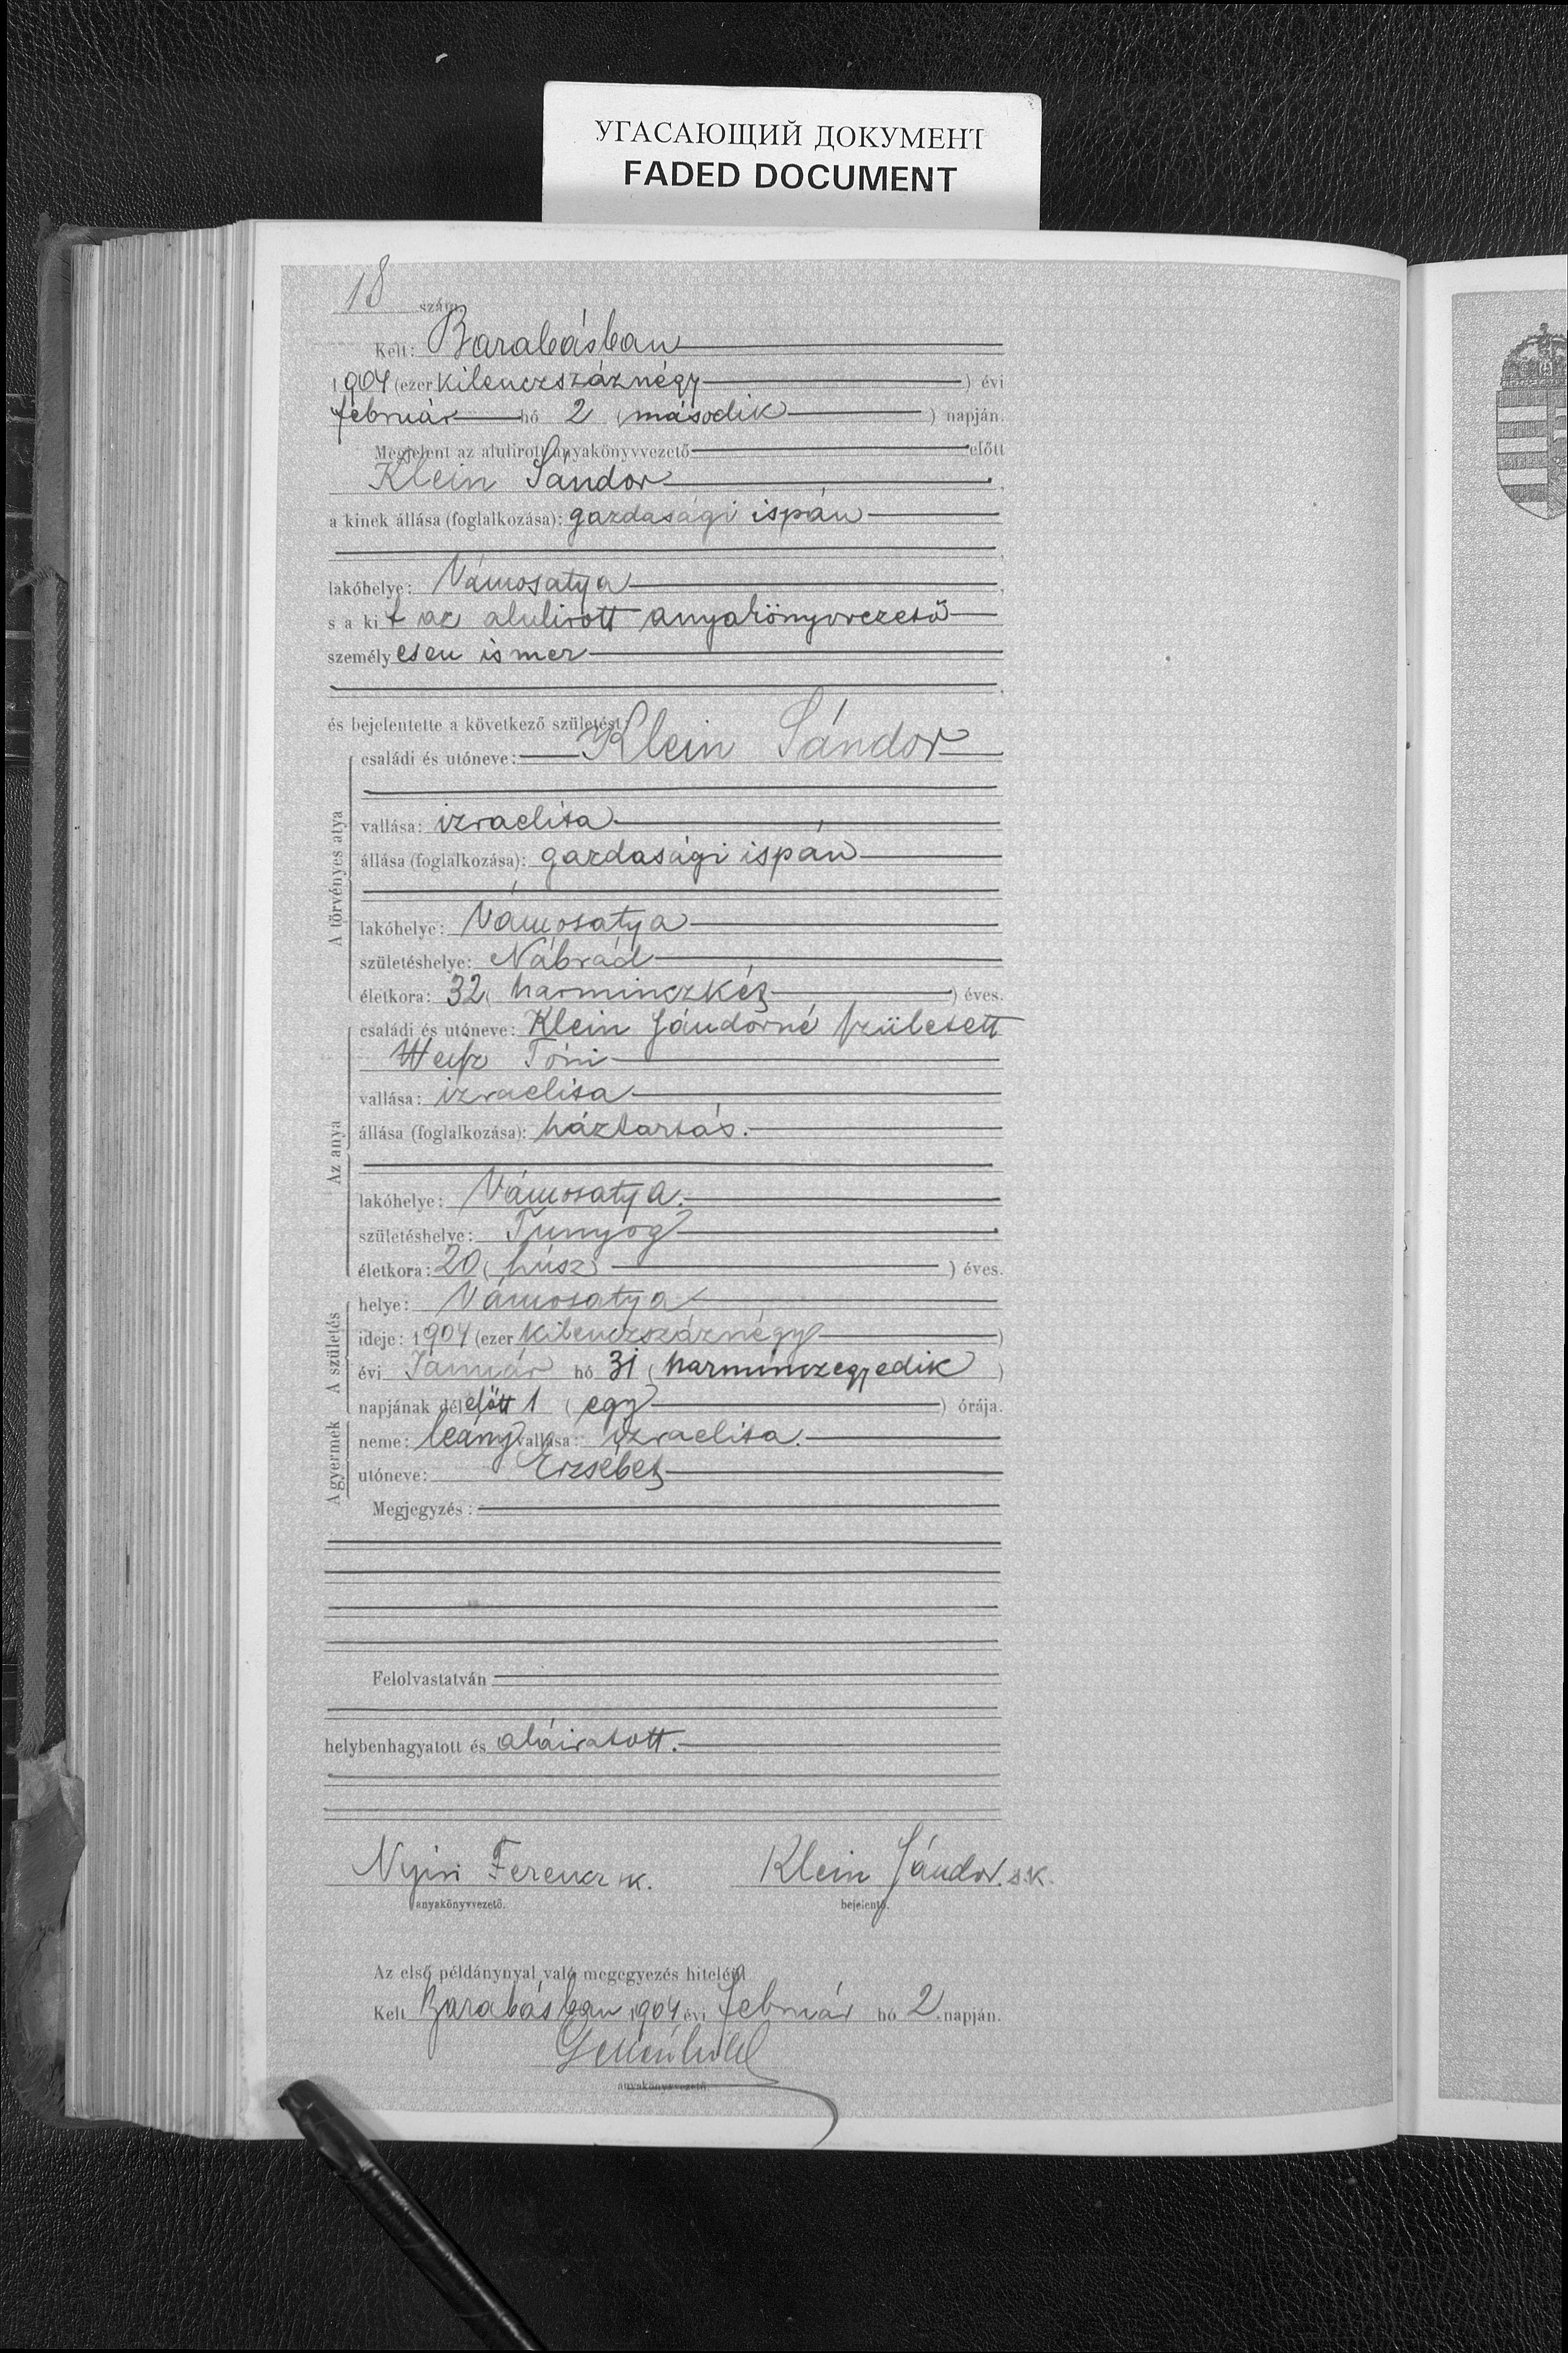 УГАСАЮЩИЙ ДОКУМЕНТ
FADED DOCUMENT
18 szám
Kelt: Barabásban
1904 (ezer kilenczszáznégy) évi
február hó 2 (második) napján.
Megjelent az alulirott anyakönyvvezető előtt
Klein Sándor
a kinek állása (foglalkozása): gazdasági ispán
lakóhelye: Vámosatya
s a kit az alulirott anyakönyvvezető
személyesen ismer
és bejelentette a következő születést:
A törvényes atya
családi és utóneve: Klein Sándor
vallása: izraelita
állása (foglalkozása): gazdasági ispán
lakóhelye: Vámosatya
születéshelye: Nábrád
életkora: 32 (harminczkét) éves.
Az anya
családi és utóneve: Klein Sándorné született
Weisz Tóni
vallása: izraelita
állása (foglalkozása): háztartás.
lakóhelye: Vámosatya.
születéshelye: Tunyog
életkora: 20 (húsz) éves.
A születés
helye: Vámosatya
ideje: 1904 (ezer kilenczszáznégy)
évi Január hó 31 (harminczegyedik)
napjának délelőtt 1 (egy) órája.
A gyermek
neme: leány vallása: izraelita.
utóneve: Erzsébet
Megjegyzés:
Felolvastatván
helybenhagyatott és aláiratott.
Nyiri Ferencz sk. Klein Sándor. s.k.
anyakönyvvezető. bejelentő.
Az első példánynyal való megegyezés hiteléül
Kelt Barabásban 1904 évi február hó 2. napján.
anyakönyvvezető